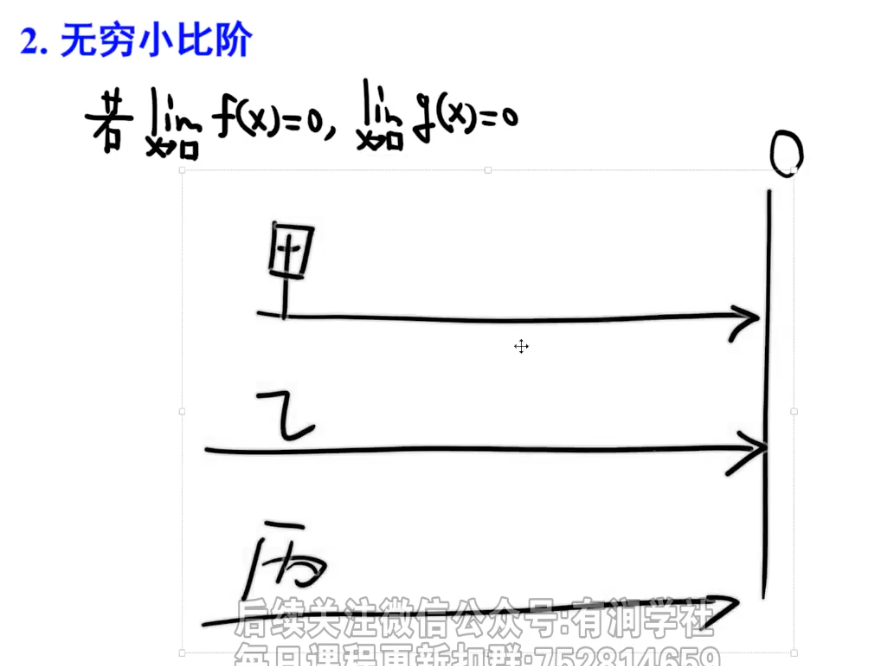 2. 无穷小比阶
若 lim x→□ f(x)=0, lim x→□ g(x)=0
0
甲
乙
丙
后续关注微信公众号:有润学社
每日课程更新扣群:752814659